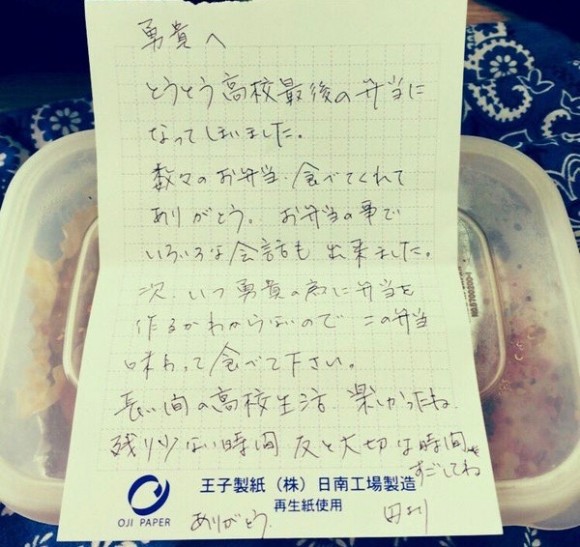 勇貴へ
とうとう高校最後の弁当に
なってしまいました。
数々のお弁当、食べてくれて
ありがとう。お弁当の事で
いろいろな会話も出来ました。
次、いつ勇貴の為に弁当を
作るかわからないので この弁当
味わって食べて下さい。
長い間の高校生活 楽しかったね
残り少ない時間 友と大切な時間
すごしてね
王子製紙（株）日南工場製造
再生紙使用
OJI PAPER
ありがとう 母より